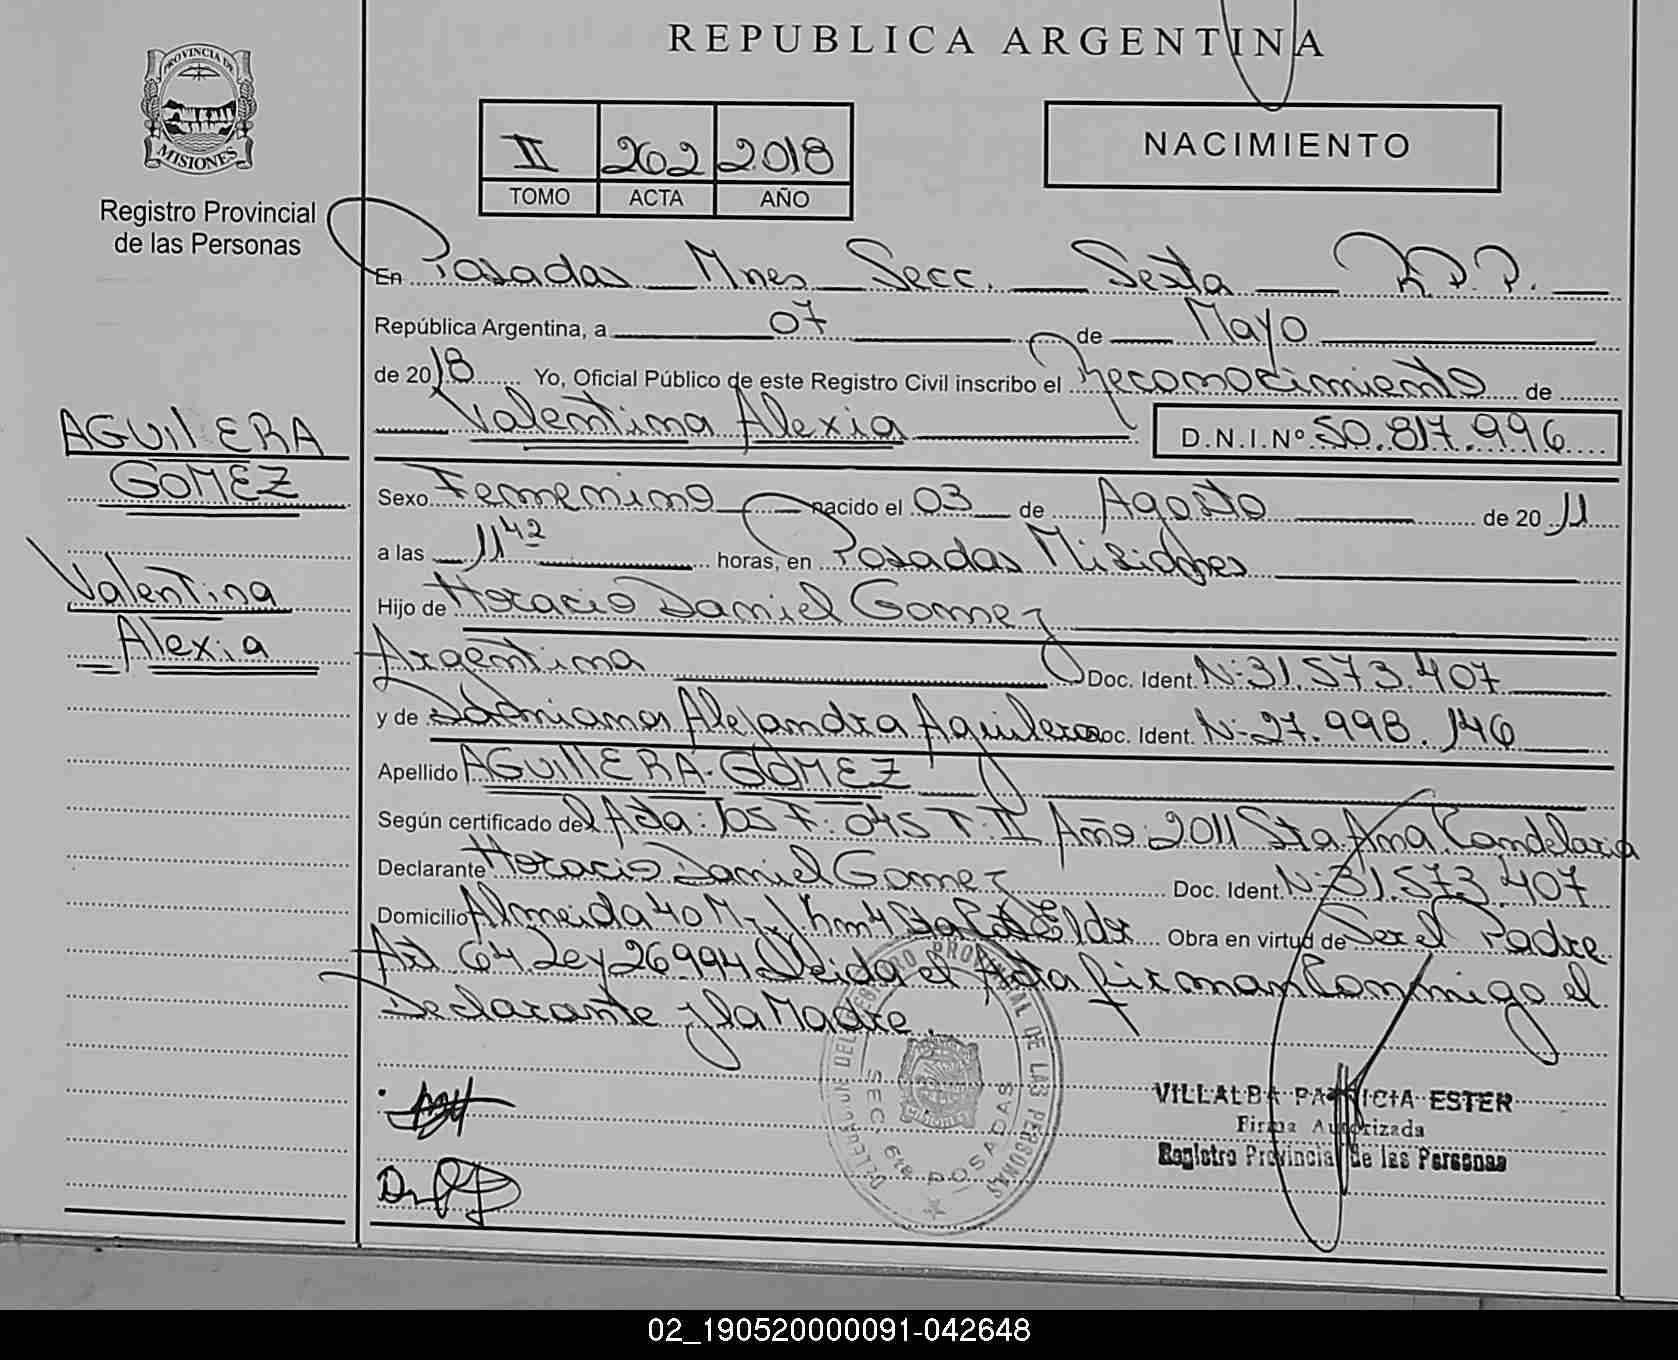 REPUBLICA ARGENTINA
PROVINCIA DE
MISIONES
Registro Provincial
de las Personas
II 262 2018
TOMO ACTA AÑO
NACIMIENTO
En Posadas Mnes Secc. Sesta R.P.P.
República Argentina, a 07 de Mayo
de 2018 Yo, Oficial Público de este Registro Civil inscribo el Reconocimiento de
Valentina Alexia D.N.I.Nº 50.817.996
AGUILERA
GOMEZ
Valentina
Alexia
Sexo Femenino nacido el 03 de Agosto de 2011
a las 11 42 horas, en Posadas Misiones
Hijo de Horacio Daniel Gomez
Argentina Doc. Ident. N- 31.573.407
y de Alejandra Aguilera Doc. Ident. N- 27.998.146
Apellido AGUILERA GOMEZ
Según certificado del Acta: 105 F: 045 T: II Año: 2011 Sta Ana Candelaria
Declarante Horacio Daniel Gomez Doc. Ident. N- 31.573.407
Domicilio Almeida 40 Obra en virtud de Ser el Padre
Art 64 Ley 26994 Leida el Acta firman Conmigo el
Declarante y la Madre.
DELEGACION DEL REGISTRO PROVINCIAL DE LAS PERSONAS
SEC. 6ta POSADAS
VILLALBA PATRICIA ESTER
Firma Autorizada
Registro Provincial de las Personas
02_190520000091-042648